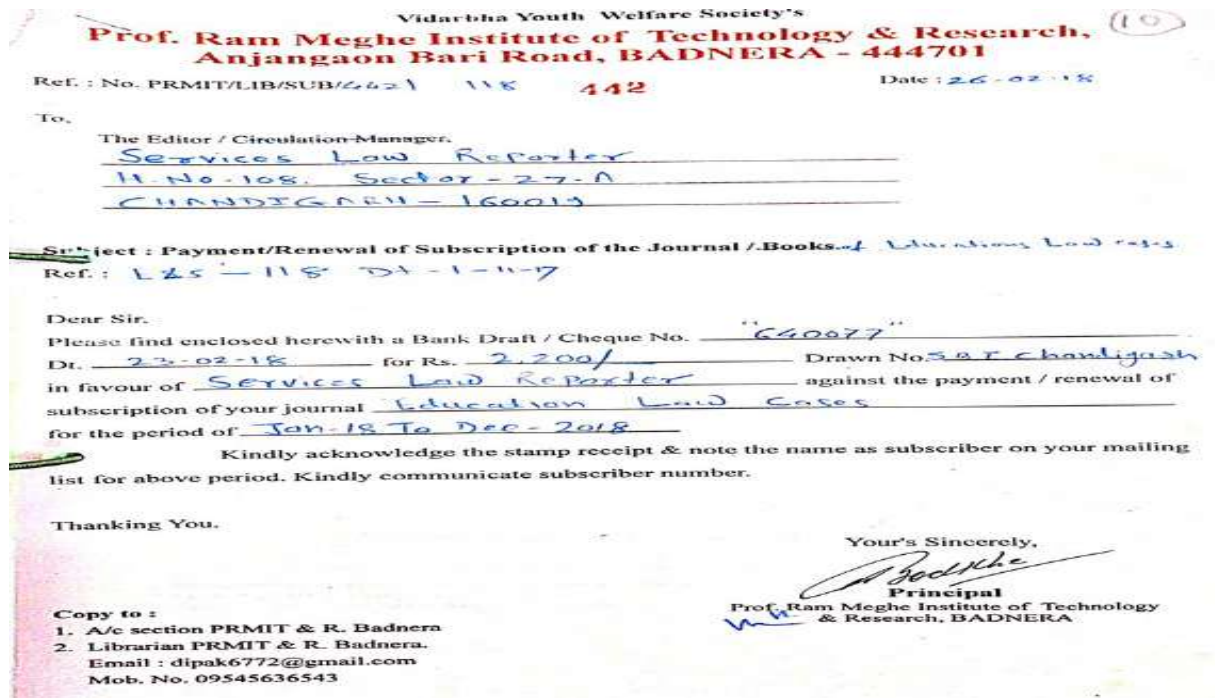 (10)
Vidarbha Youth Welfare Society's
Prof. Ram Meghe Institute of Technology & Research,
Anjangaon Bari Road, BADNERA - 444701
Ref. : No. PRMIT/LIB/SUB/4421 118 442 Date : 26-02-18
To,
The Editor / Circulation Manager.
Services Law Reporter
H.No-108. Sector-27-A
CHANDIGARH - 160019
Subject : Payment/Renewal of Subscription of the Journal / Books of Educations Law cases
Ref. : 118 Dt-1-11-17
Dear Sir.
Please find enclosed herewith a Bank Draft / Cheque No. "640077"
Dt. 23-02-18 for Rs. 2,200/ Drawn No. SBI Chandigarh
in favour of Services Law Reporter against the payment / renewal of
subscription of your journal Education Law Cases
for the period of Jan-18 To Dec-2018
Kindly acknowledge the stamp receipt & note the name as subscriber on your mailing
list for above period. Kindly communicate subscriber number.
Thanking You.
Your's Sincerely,
Principal
Prof. Ram Meghe Institute of Technology
& Research, BADNERA
Copy to :
1. A/c section PRMIT & R. Badnera
2. Librarian PRMIT & R. Badnera.
Email : dipak6772@gmail.com
Mob. No. 09545636543